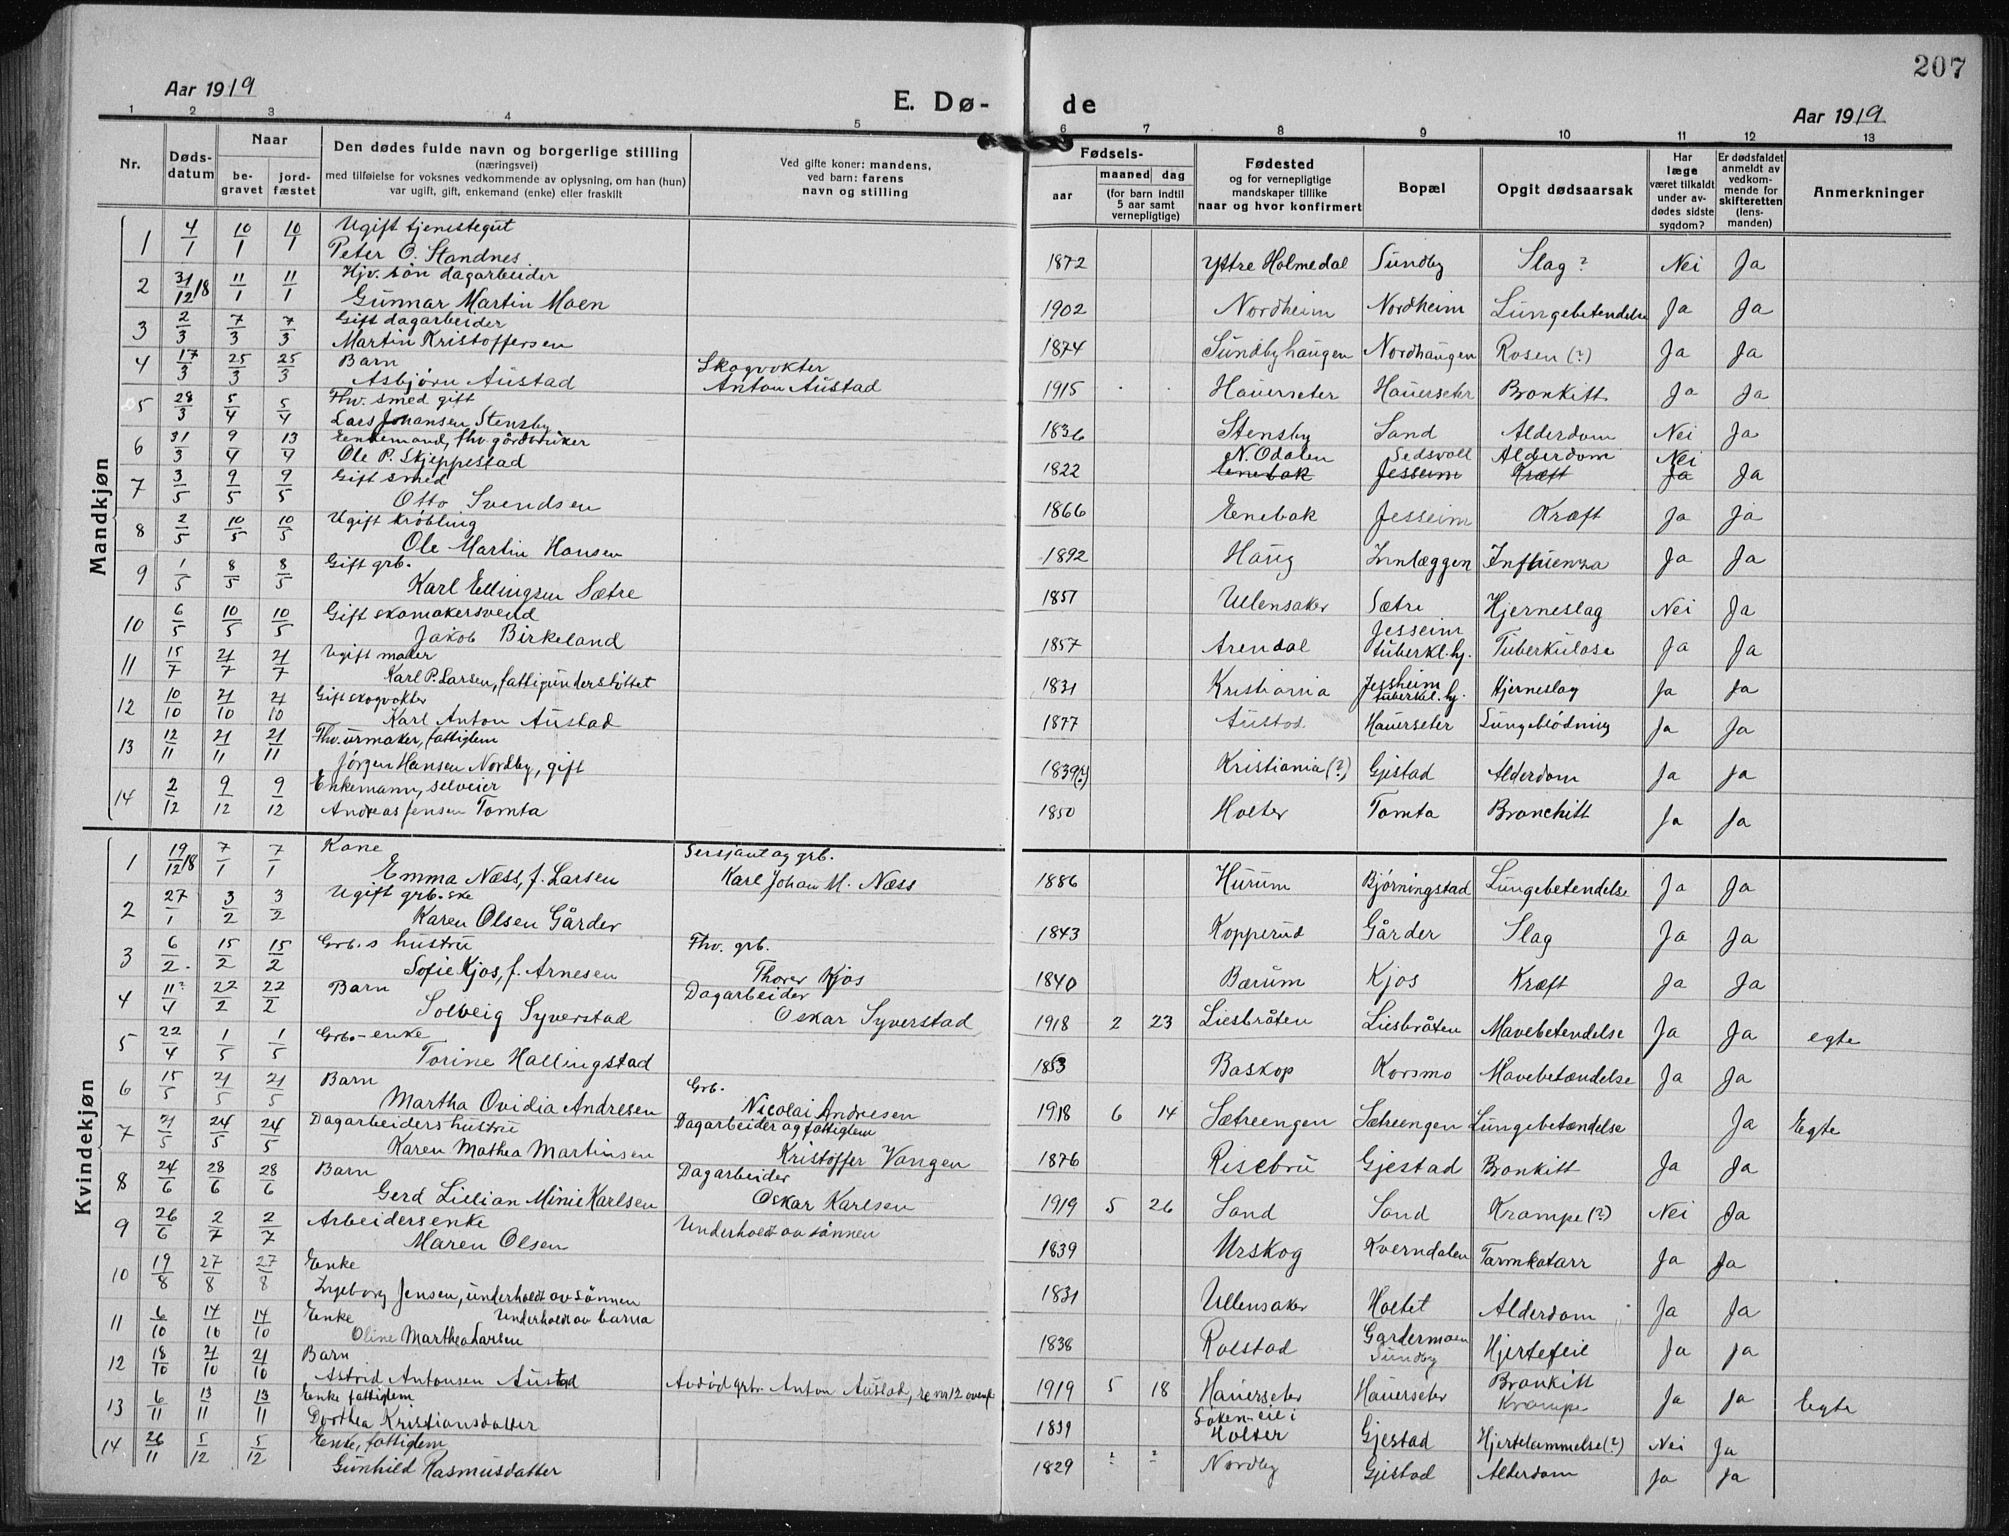 207
Aar 1919
E. Dø- de
Aar 1919
1 2 3 4 5 6 7 8 9 10 11 12 13
Nr.
Døds-datum
Naar
be-gravet
jord-fæstet
Den dødes fulde navn og borgerlige stilling
(næringsvei)
med tilføielse for voksnes vedkommende av oplysning, om han (hun)
var ugift, gift, enkemand (enke) eller fraskilt
Ved gifte koner: mandens,
ved barn: farens
navn og stilling
Fødsels-
aar
maaned dag
(for barn indtil 5 aar samt vernepligtige)
Fødested
og for vernepligtige
mandskaper tillike
naar og hvor konfirmert
Bopæl
Opgit dødsaarsak
Har læge været tilkaldt under av-dødes sidste sygdom?
Er dødsfaldet anmeldt av vedkom-mende for skifteretten (lens-manden)
Anmerkninger
Mandkjøn
1 4/1 10/1 10/1 Ugift tjenestegut
Peter O. Standnes 1872 Yttre Holmedal Sundby Slag? Nei Ja
2 31/12 18 11/1 11/1 Hjv. søn dagarbeider
Gunnar Martin Moen 1902 Nordheim Nordheim Lungebetendelse Ja Ja
3 2/3 7/3 7/3 Gift dagarbeider
Martin Kristoffersen 1874 Sundbyhaugen Nordhaugen Rosen (?) Ja Ja
4 17/3 25/3 25/3 Barn Skogvokter
Asbjørn Austad Anton Austad 1915 Hauerseter Hauerseter Bronkitt Ja Ja
5 28/3 5/4 5/4 Fhv. smed gift
Lars Johansen Stensby 1836 Stensby Sand Alderdom Nei Ja
6 31/3 9/4 13/4 Enkemand, fhv. gårdbruker N. Odalen Sedsvoll Alderdom Nei
Ole P. Skjeppestad 1822 Enebak Jesseim Kræft Ja Ja
7 3/5 9/5 9/5 Gift smed
Otto Svendsen 1866 Enebak Jesseim Kræft Ja Ja
8 2/5 10/5 10/5 Ugift krøbling
Ole Martin Hansen 1892 Haug Innlæggen Influenza Ja Ja
9 1/5 8/5 8/5 Gift grb.
Karl Ellingsen Sætre 1857 Ullensaker Sætre Hjerneslag Nei Ja
10 6/5 10/5 10/5 Gift skomakersvend Jesseim
Jakob Birkeland 1857 Arendal tuberkl. hj. Tuberkulose Ja Ja
11 15/7 21/7 21/7 Ugift maler Jessheim
Karl P. Larsen, fattigunderstøttet 1831 Kristiania tuberkl. hj. Hjerneslag Ja Ja
12 10/10 21/10 21/10 Gift skogvokter
Karl Anton Austad 1877 Austad Hauerseter Lungeblødning Ja Ja
13 12/11 21/11 21/11 Fhv. urmaker, fattiglem
Jørgen Hansen Nordby, gift 1839(?) Kristiania (?) Gjestad Alderdom Ja Ja
14 2/12 9/12 9/12 Enkemann, selveier
Andreas Jensen Tomta 1850 Holter Tomta Bronchitt Ja Ja
Kvindekjøn
1 19/12 18 7/1 7/1 Kone Sersjant og grb.
Emma Næss, f. Larsen Karl Johan M. Næss 1886 Hurum Bjørningstad Lungebetendelse Ja Ja
2 27/1 3/2 3/2 Ugift grb.ske
Karen Olsen Gårder 1843 Kopperud Gårder Slag Ja Ja
3 6/2 15/2 15/2 Grb.s hustru Fhv. grb.
Sofie Kjos, f. Arnesen Thorer Kjos 1840 Bærum Kjos Kræft Ja Ja
4 11?/4 22/2 22/2 Barn Dagarbeider
Solveig Syverstad Oskar Syverstad 1918 2 23 Liesbråten Liesbråten Mavebetendelse Ja Ja egte
5 22/4 1/5 1/5 Grb.-enke
Torine Hallingstad 1853 Baskop Korsmo Mavebetændelse Ja Ja
6 15/5 21/5 21/5 Barn Grb.
Martha Ovidia Andresen Nicolai Andresen 1918 6 14 Sætreengen Sætreengen Lungebetændelse Ja Egte
7 21/5 24/5 24/5 Dagarbeiders hustru Dagarbeider og fattiglem
Karen Mathea Martinsen Kristoffer Vangen 1876 Risebru Gjestad Bronkitt Ja Ja
8 24/6 28/6 28/6 Barn Dagarbeider
Gerd Lillian Minie Karlsen Oskar Karlsen 1919 5 26 Sand Sand Krampe (?) Nei Ja
9 26/6 2/7 2/7 Arbeidersenke Underholdt av sønnen
Maren Olsen 1839 Urskog Kverndalen Tarmkatarr Ja Ja
10 19/8 27/8 27/8 Enke
Ingeborg Jensen, underholdt av sønnen 1831 Ullensaker Holtet Alderdom Ja Ja
11 6/10 14/10 14/10 Enke Underholdt av barna Gardermoen
Oline Marthea Larsen 1838 Rolstad Sundby Hjertefeil Ja Ja
12 18/10 21/10 21/10 Barn Bronkitt
Astrid Antonsen Austad Avdød grb. Anton Austad, se nr 12 ovenf. 1919 5 18 Hauerseter Hauerseter Krampe Ja Ja Egte
13 6/11 13/11 13/11 Enke fattiglem
Dorthea Kristiansdatter 1839 Holter Gjestad Hjertelammelse (?) Nei Ja
14 26/11 5/12 5/12 Enke, fattiglem
Gunhild Rasmusdatter 1829 ? ? Nordby Gjestad Alderdom Ja Ja